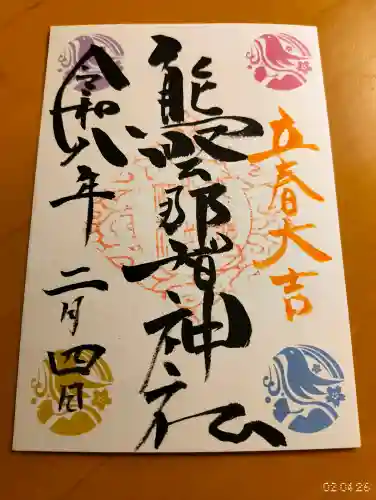 立春大吉
熊野那智神社
令和八年二月四日
02 04 26